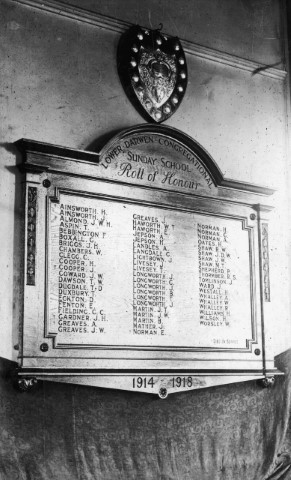 LOWER DARWEN CONGREGATIONAL
SUNDAY SCHOOL
Roll of Honour
AINSWORTH. H.
AINSWORTH. J.
ALMOND. J.W.H.
ASPIN. T.
BEBBINGTON. T.
BOXALL. C.
BRIGGS. J.H.
CHAMBERS. W.
CLEGG. C.
COOPER. H.
COOPER. J.
COWARD. J.W.
DAWSON. T.W.
DUGDALE. T.D.
DUXBURY. T.
ECKTON. D.
FENTON. E.
FIELDING. C.C.
GARDNER. J.H.
GREAVES. A.
GREAVES. J.W.
GREAVES.
HAWORTH. W.
HAWORTH.
JEPSON. A.
JEPSON. H.
LANDLES. A.
LANGDALE.
LIGHTBOWN. J.
LIVESEY.
LIVESEY. T.
LONGWORTH.
LONGWORTH. J.
LONGWORTH.
LONGWORTH.
LONGWORTH.
MARTIN. J.
MARTIN.
MARTIN.
MATHER. J.
NORMAN. E.
NORMAN. H.
NORMAN.
NORMAN.
OATES. H.
SHAW. R.W.
SHAW. J.
SHAW. J.
SHAW. N.
SHEPHERD.
TOMLINSON. J.
WARD. J.
WESTALL.
WHALLEY.
WHALLEY.
WHALLEY.
WILLIAMS. F.
WILSON.
WORSLEY. W.
1914 - 1918